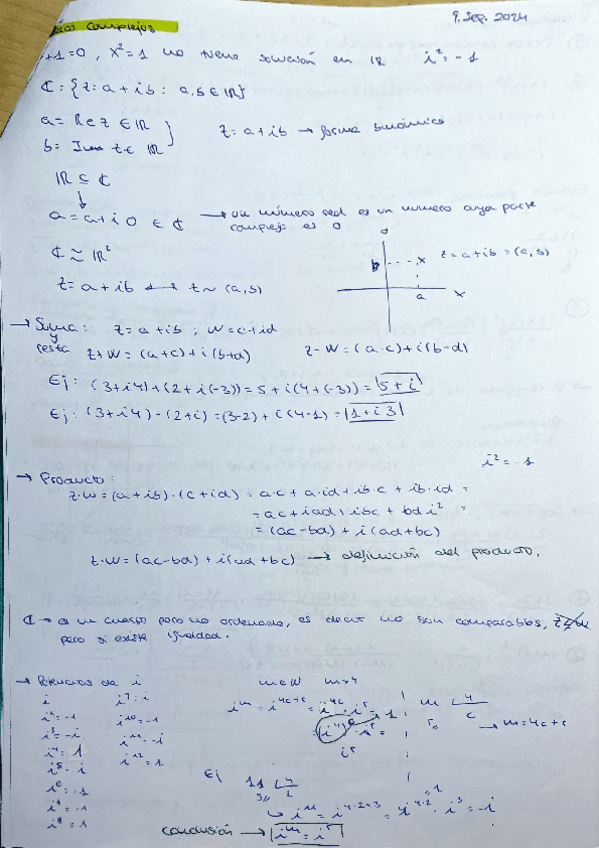 9. Sep. 2024
Complejos
+1=0, x²=1 no tiene solución en ℝ   i²=-1
ℂ={z=a+ib: a,b∈ℝ}
a=Re z ∈ ℝ
b=Im z ∈ ℝ }   z=a+ib → forma binómica
ℝ ⊆ ℂ
↓
a=a+i0 ∈ ℂ → un número real es un numero cuya parte
compleja es 0
ℂ ≃ ℝ²
b   x   z=a+ib=(a,b)
z=a+ib ↔ z~(a,b)
a   x
→ Suma: z=a+ib; w=c+id
y
resta   z+w=(a+c)+i(b+d)   z-w=(a-c)+i(b-d)
Ej: (3+i4)+(2+i(-3))=5+i(4+(-3))=5+i
Ej: (3+i4)-(2+i)=(3-2)+i(4-1)=1+i3
i²=-1
→ Producto:
z·w=(a+ib)·(c+id)=ac+a·id+ib·c+ib·id=
=ac+iad+ibc+bdi²=
=(ac-bd)+i(ad+bc)
z·w=(ac-bd)+i(ad+bc) → definición del producto.
ℂ → es un cuerpo pero no ordenado, es decir no son comparables, z≮w
pero si existe igualdad.
→ Potencias de i   m∈ℕ   m>4
i   i⁹=i   iᵐ=i⁴ᶜ⁺ʳ=i⁴ᶜ·iʳ=   m   4
i²=-1   i¹⁰=-1   (i⁴)ᶜ·iʳ=   1   r   c → m=4c+r
i³=-i   i¹¹=-i   iʳ
i⁴=1   i¹²=1
i⁵=i   Ej   11   4
i⁶=-1   3   2
i⁷=-i   ↳ i¹¹=i⁴·²⁺³=i⁴·²·i³=-i
=1
i⁸=1
conclusión → iᵐ=iʳ